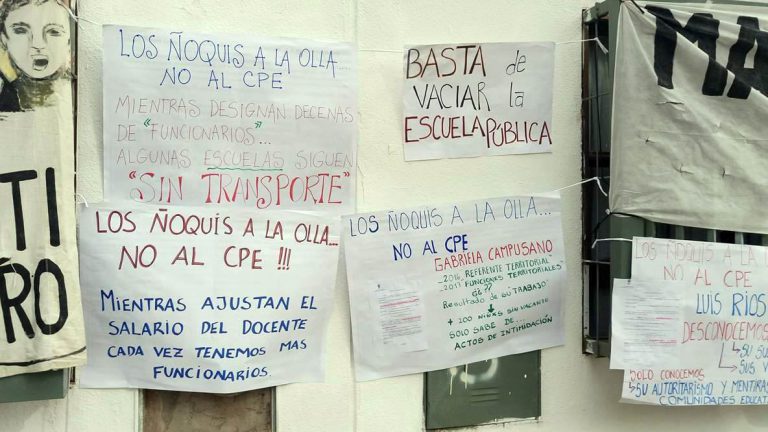 LOS ÑOQUIS A LA OLLA....
NO AL CPE
MIENTRAS DESIGNAN DECENAS
DE "FUNCIONARIOS"...
ALGUNAS ESCUELAS SIGUEN
"SIN TRANSPORTE"
BASTA de
VACIAR la
ESCUELA PÚBLICA
MA
TI
RO
LOS ÑOQUIS A LA OLLA...
NO AL CPE !!!
MIENTRAS AJUSTAN EL
SALARIO DEL DOCENTE
CADA VEZ TENEMOS MAS
FUNCIONARIOS.
LOS ÑOQUIS A LA OLLA...
NO AL CPE
GABRIELA CAMPUSANO
_2016, REFERENTE TERRITORIAL"
_2017 FUNCIONES TERRITORIALES"
Resultado de SU "TRABAJO"
+ 200 NIÑXS SIN VACANTE
SOLO SABE DE...
ACTOS DE INTIMIDACIÓN
LOS ÑOQUIS A LA
NO AL CPE
LUIS RIOS
DESCONOCEMOS
SU
SUS
SOLO CONOCEMOS
SU AUTORITARISMO Y MENTIRAS
COMUNIDADES EDUCAT